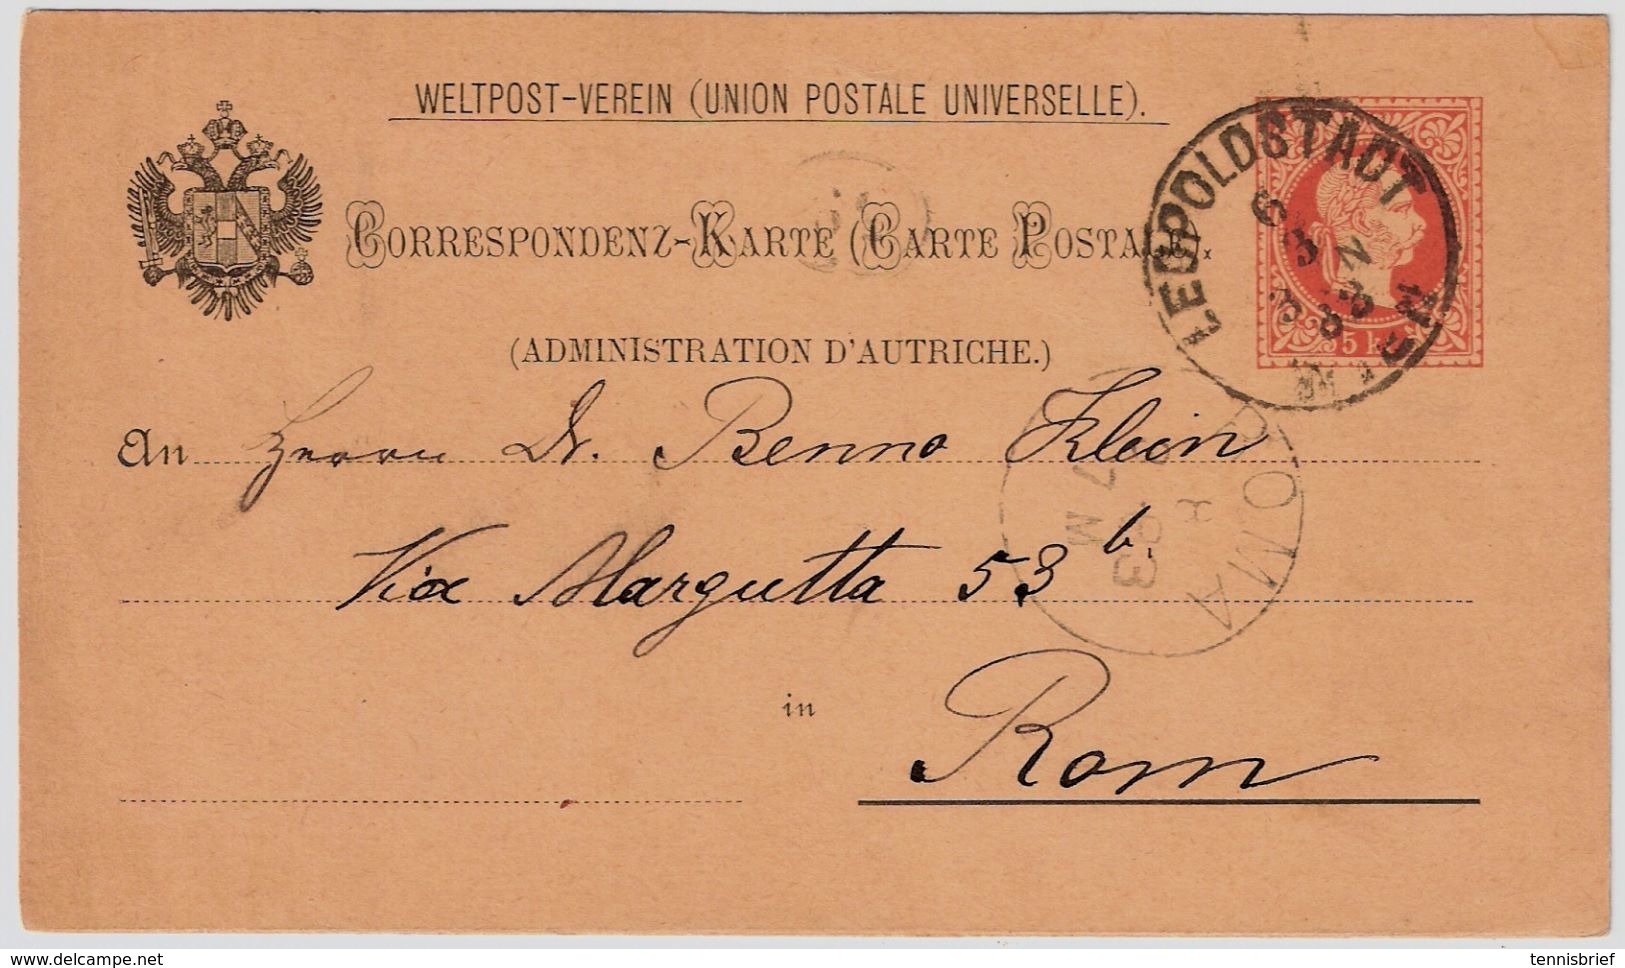 WELTPOST-VEREIN (UNION POSTALE UNIVERSELLE).
CORRESPONDENZ-KARTE (CARTE POSTALE).
(ADMINISTRATION D'AUTRICHE.)
LEOPOLDSTADT
5 kr
An Herrn Dr. Benno Klein
Via Margutta 53 b.
in Rom
ROMA
delcampe.net
tennisbrief